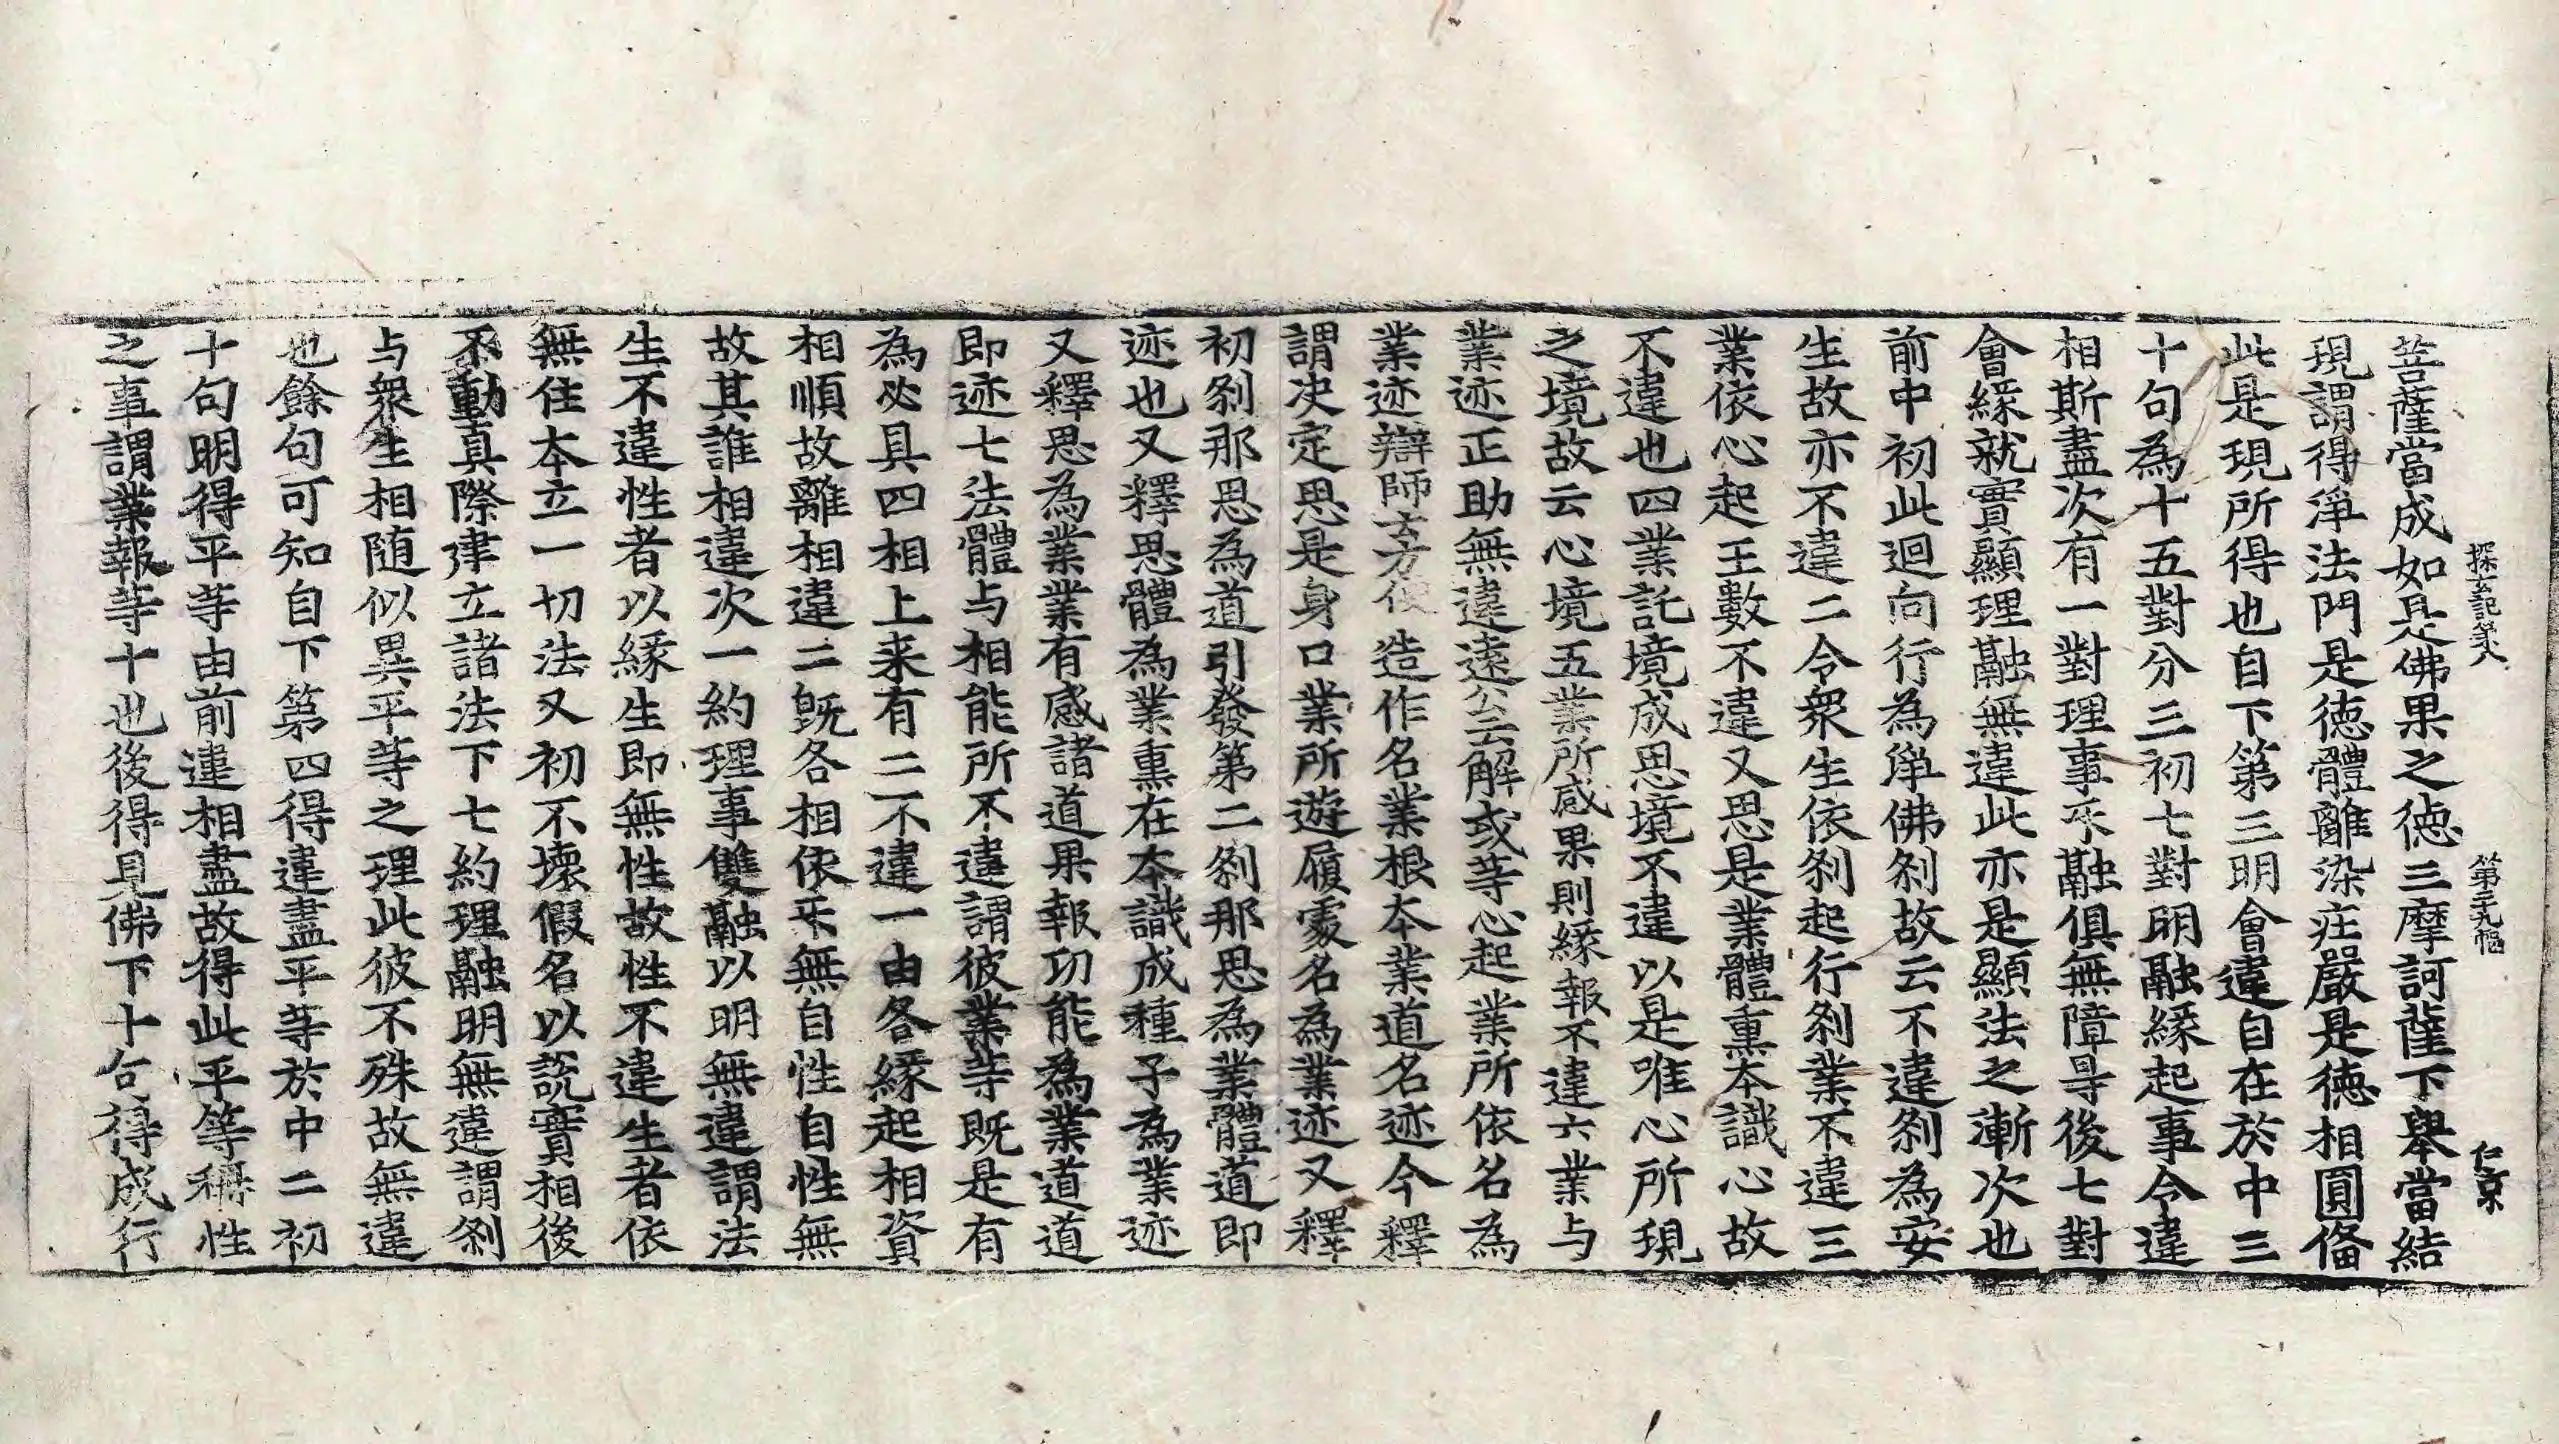 探玄記第八 第三十九幅 仁京
菩薩當成如是佛果之徳三摩訶薩下舉當結
現謂得淨法門是徳體離染荘嚴是徳相圓俻
此是現所得也自下第三明會違自在於中三
十句為十五對分三初七對明融緣起事令違
相斯盡次有一對理事乐融俱無障㝵後七對
會緣就實顯理融無違此亦是顯法之漸次也
前中初此迴向行為淨佛刹故云不違刹為安
生故亦不違二令衆生依刹起行刹業不違三
業依心起王數不違又思是業體熏本識心故
不違也四業託境成思境不違以是唯心所現
之境故云心境五業所感果則緣報不違六業与
業迹正助無違遠公云解或等心起業所依名為
業迹辯師云方便造作名業根本業道名迹今釋
謂决定思是身口業所遊履處名為業迹又釋
初刹那思為道引發第二刹那思為業體道即
迹也又釋思體為業熏在本識成種子為業迹
又釋思為業業有感諸道果報功能為業道道
即迹七法體与相能所不違謂彼業等既是有
為必具四相上来有二不違一由各緣起相資
相順故離相違二既各相依乐無自性自性無
故其誰相違次一約理事雙融以明無違謂法
生不違性者以緣生即無性故性不違生者依
無住本立一切法又初不壊假名以説實相後
不動真際建立諸法下七約理融明無違謂刹
与衆生相随似異平等之理此彼不殊故無違
也餘句可知自下第四得違盡平等於中二初
十句明得平等由前違相盡故得此平等稱性
之事謂業報等十也後得見佛下十句得成行